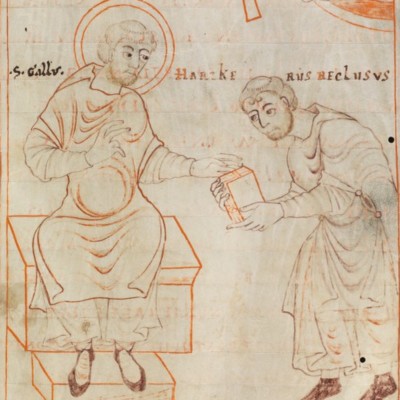 ·S·Gallu·
HARTKERUS RECLUSUS